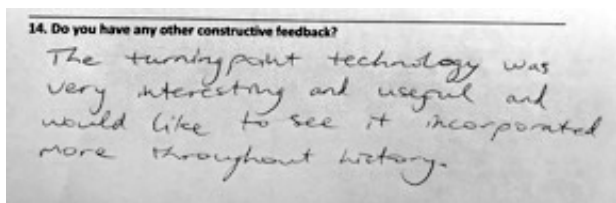 14. Do you have any other constructive feedback?
The turningpoint technology was
very interesting and useful and
would like to see it incorporated
more throughout history.